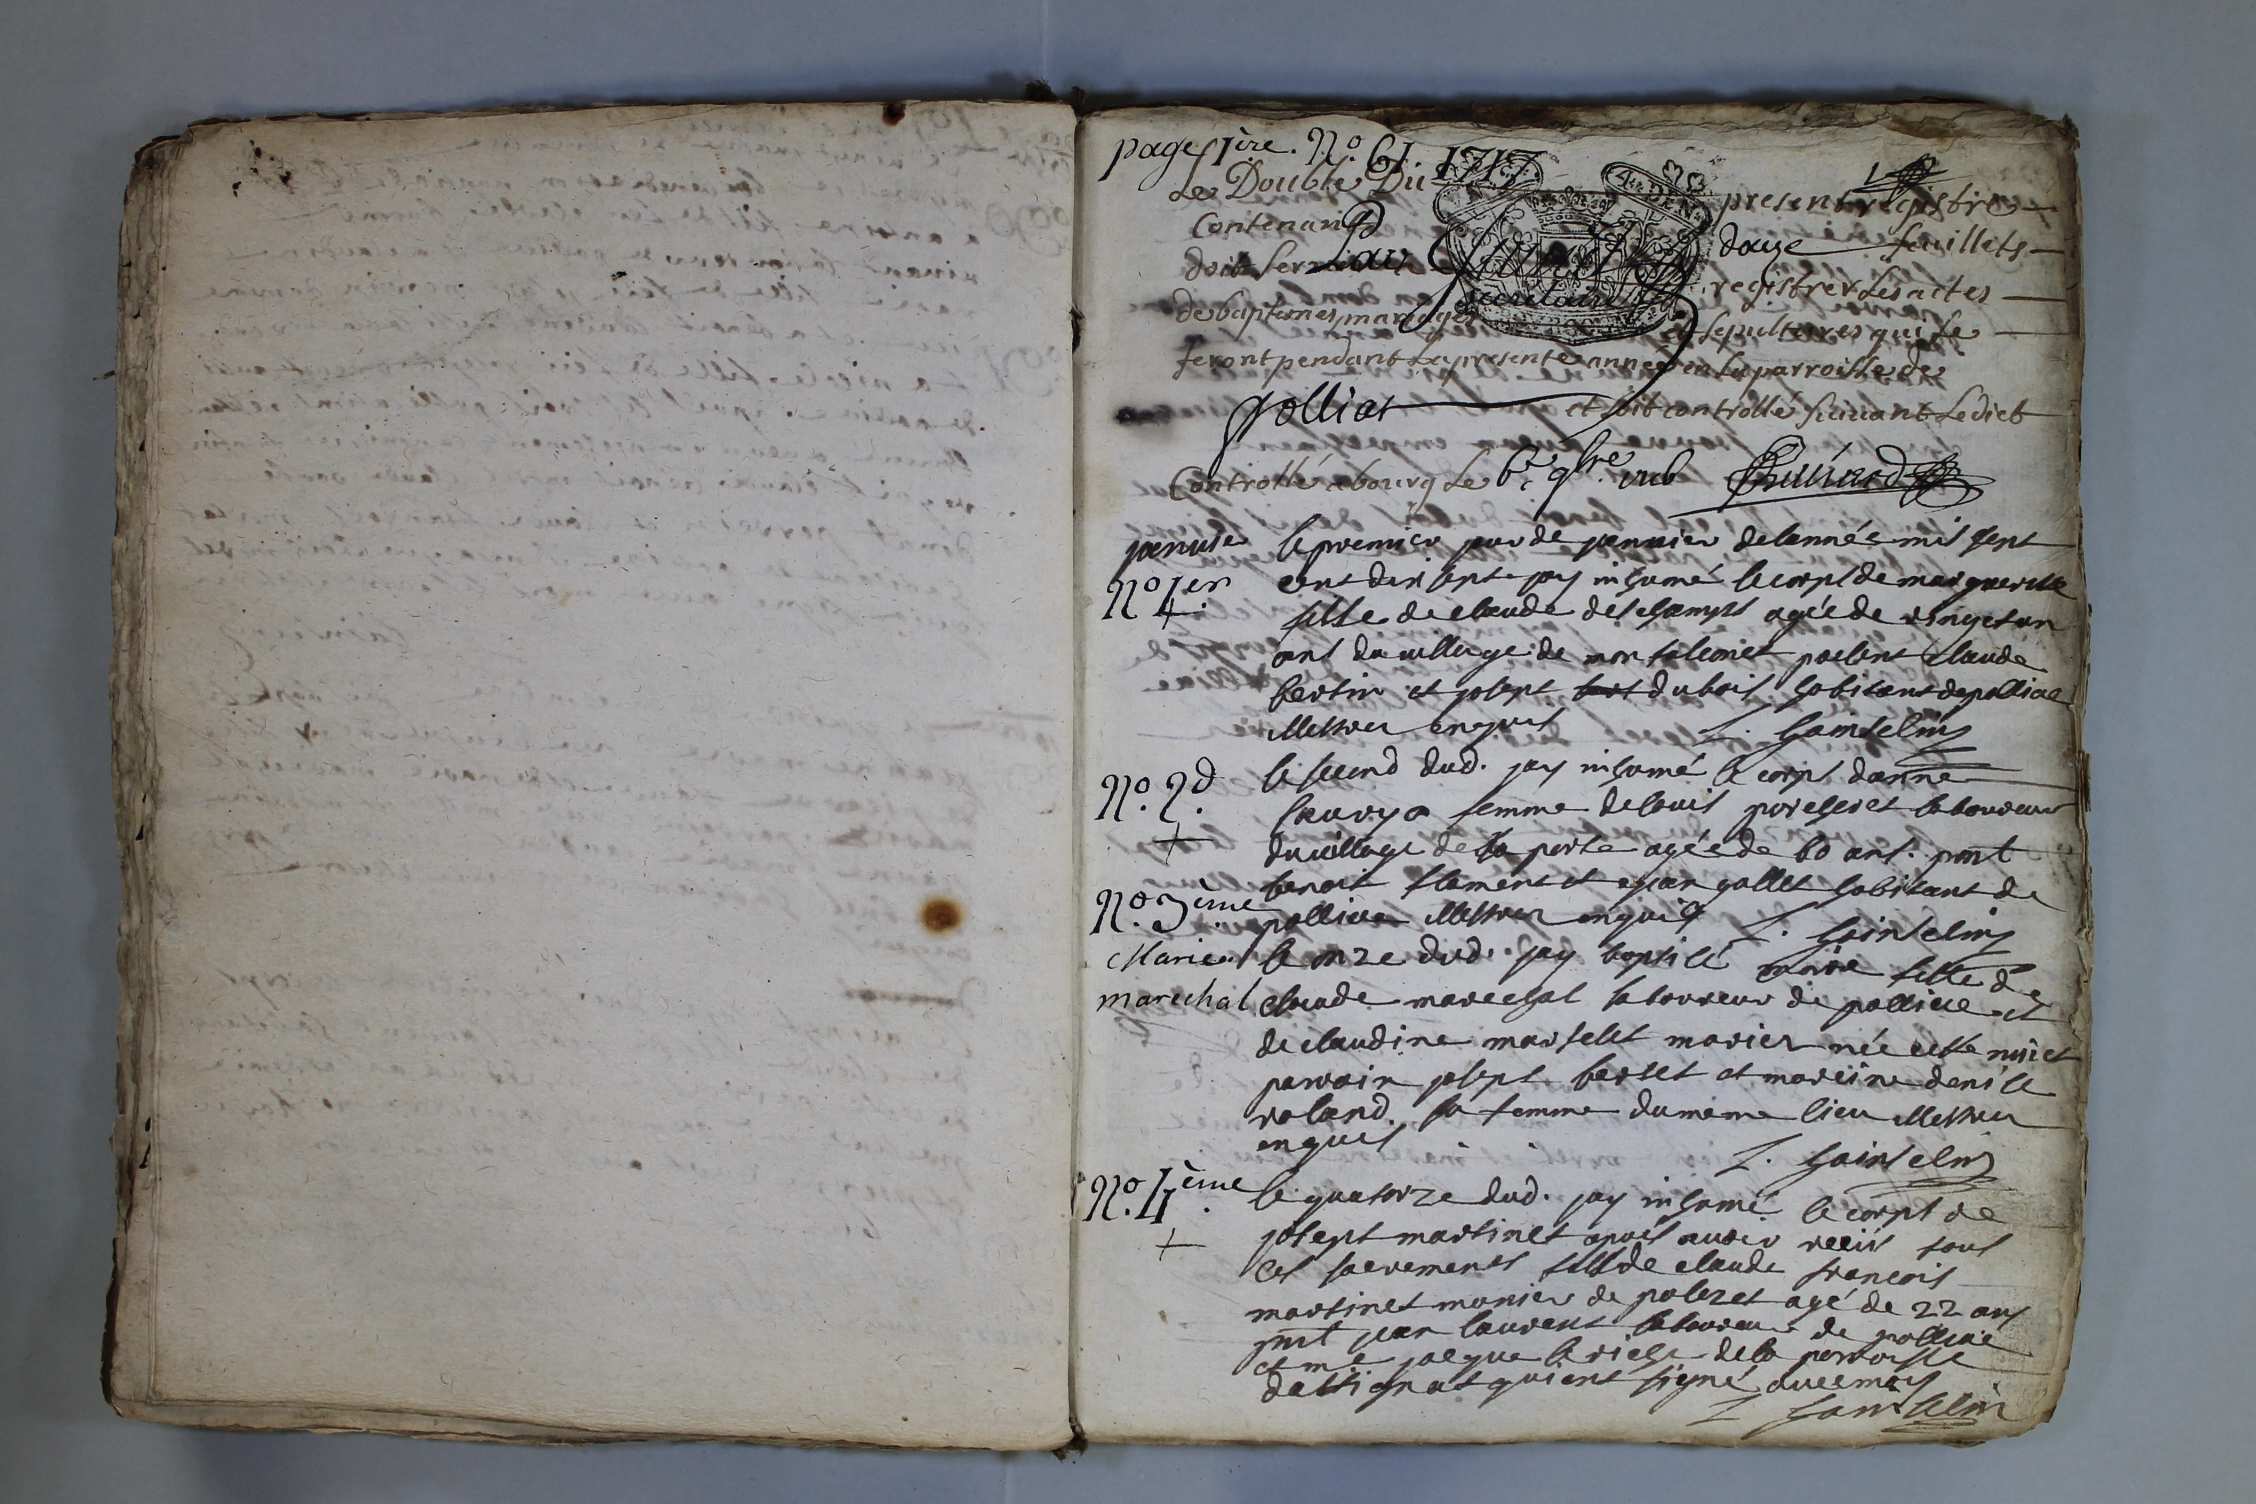 page 1ère. No. 61. 1717
Le Double Du present registre
Contenant douze feuillets
doit servir registrer Les actes
de baptemes mariages et sepultures qui se
feront pendant La presente année en La parroisse de
Polliat et soit controllé suivant Ledict
Controllé a bourg Le
januier le premier jour de januier de lannée mil sept
No 1er. cent dix sept jay inhumé le corps de marguerite
fille de claude deschamps agée de vingt un
ans du village de montaleonet pnts claude
bertin et josept dubois habitants de polliac
illettrez enquis L. Gainselin
No. 2d. le second dud. jay inhumé le corps danne
femme de louis laboureur
du village de la porte agée de 60 ans. pnt
benoit clement et jean gallet habitant de
No. 3ème polliac illettrez enquis L. Gainselin
Marie le onze dud. jay baptisé marie fille de
marechal claude marechal laboureur de polliac et
de claudine martelet mariez née cette nuict
parrain josept bertet et mareine denise
roland sa femme du meme lieu illettrez
enquis L. Gainselin
No. 4ème. le quatorze dud. jay inhumé le corps de
josept martinet apres auoir reciu tous
les sacrements fils de claude françois
martinet munier de polezet agé de 22 ans
pnt jean laurent laboureur de polliac
et me jacque de la parroisse
dattignat qui ont signé auec moy
L Gainselin